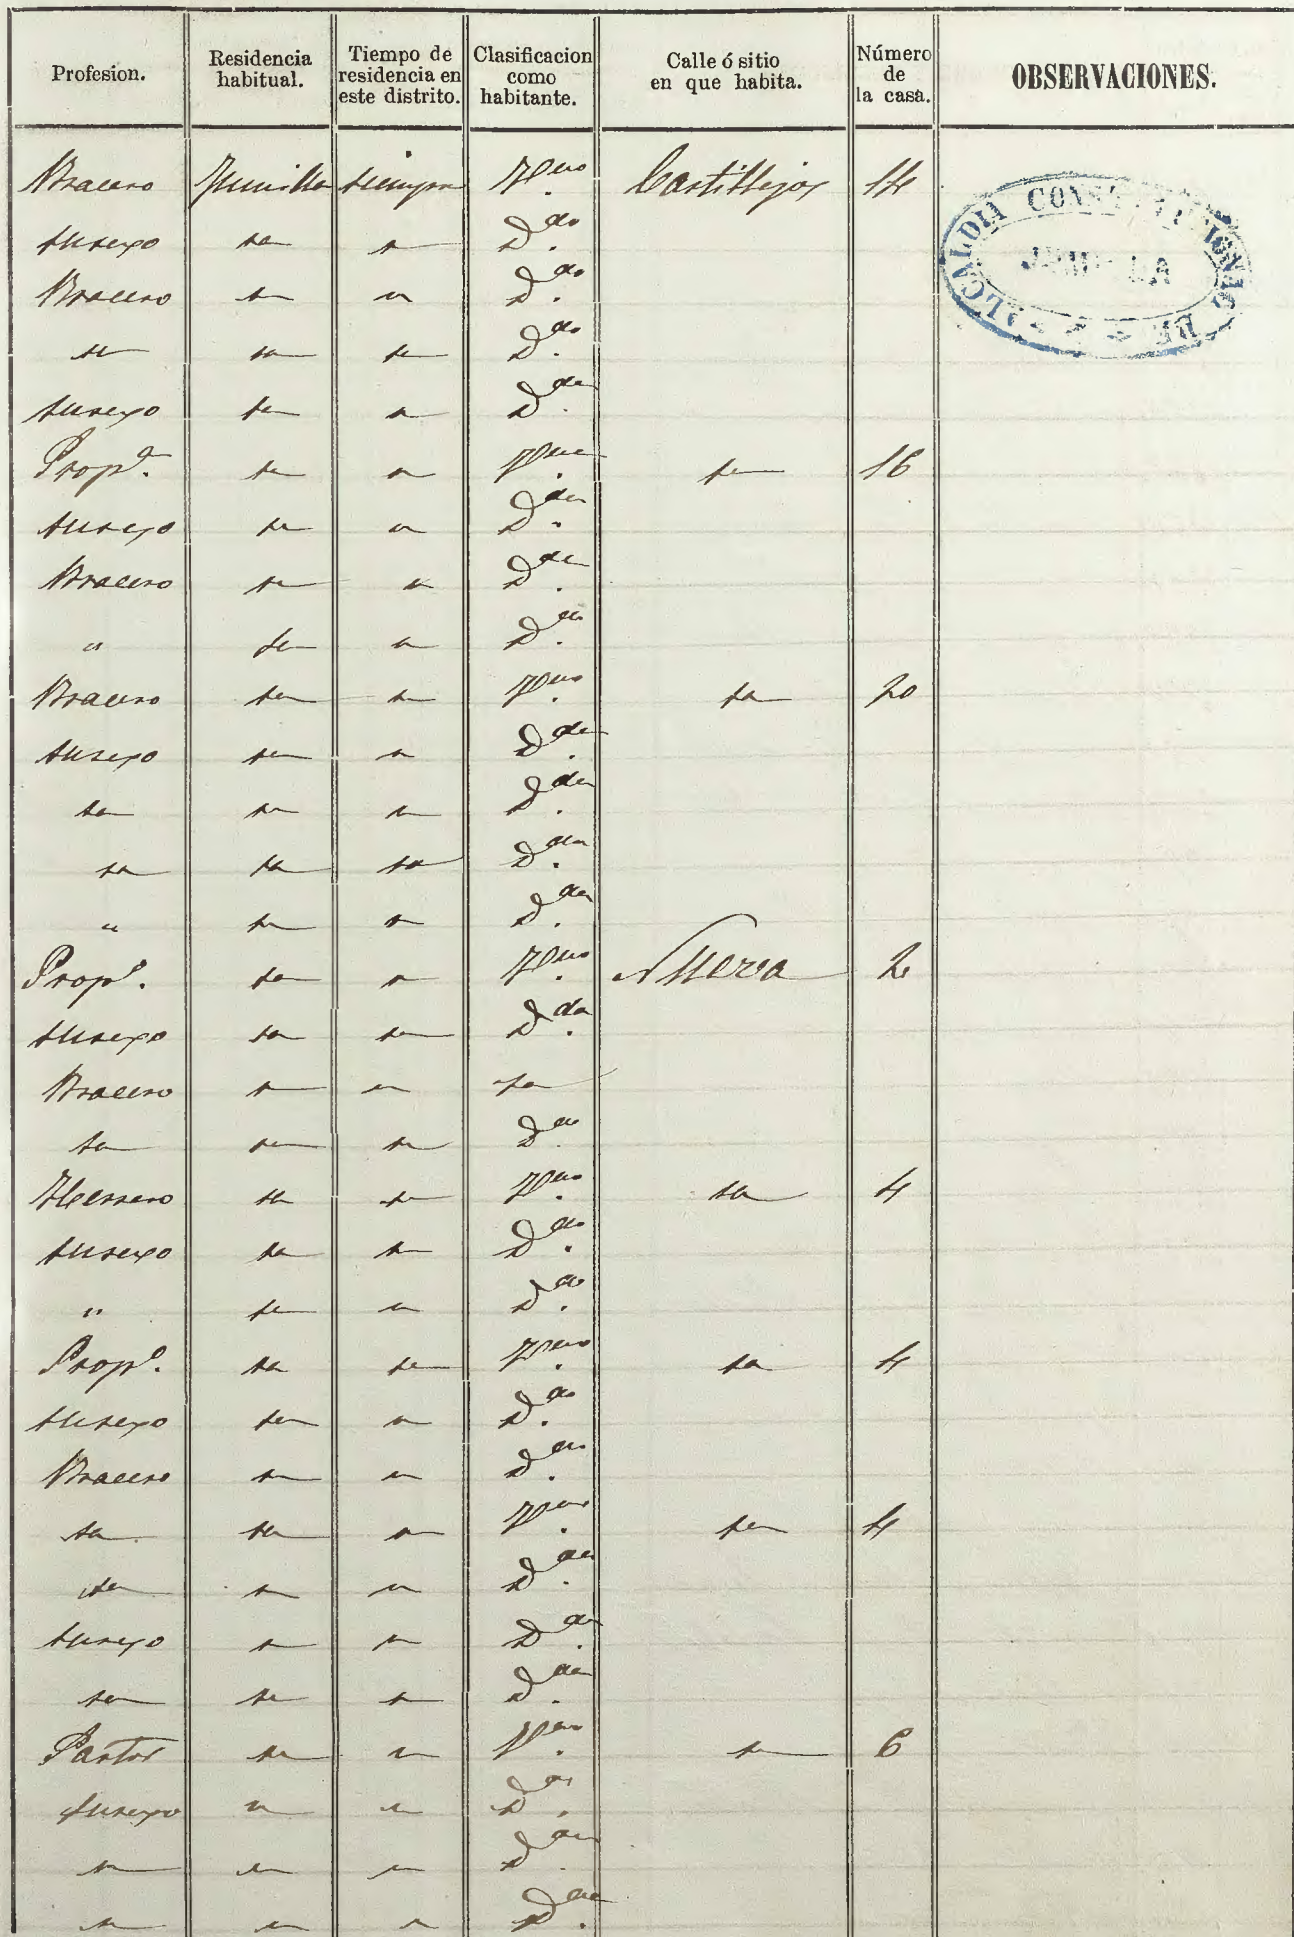 Profesion. Residencia habitual. Tiempo de residencia en este distrito. Clasificacion como habitante. Calle ó sitio en que habita. Número de la casa. OBSERVACIONES.
Bracero Jumilla siempre Vno Castillejos 14
ALCALDIA CONSTITUCIONAL DE JUMILLA
su sexo id id Ddo
Bracero id id Ddo
id id id Ddo
su sexo id id Dda
Propº id id Vno id 16
su sexo id id Dda
Bracero id id Ddo
" id id Ddo
Bracero id id Vno id 20
su sexo id id Dda
id id id Dda
id id id Dda
" id id Dda
Propº. id id Vno Nueva 2
su sexo id id Dda
Bracero id id id
id id id Ddo
Herrero id id Vno id 4
su sexo id id Dda
" id id Ddo
Propº. id id Vno id 4
su sexo id id Dda
Bracero id id Ddo
id id id Vno id 4
id id id Ddo
su sexo id id Dda
id id id Dda
Pastor id id Vno id 6
su sexo id id Dda
id id id Dda
id id id Dda